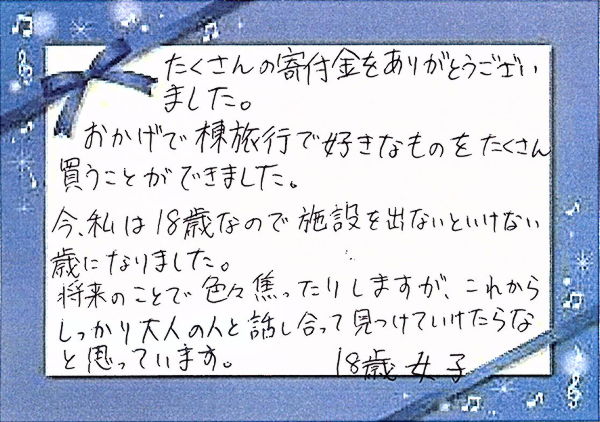 たくさんの寄付金をありがとうござい
ました。
おかげで棟旅行で好きなものをたくさん
買うことができました。
今、私は18歳なので施設を出ないといけない
歳になりました。
将来のことで色々焦ったりしますが、これから
しっかり大人の人と話し合って見つけていけたらな
と思っています。
18歳女子